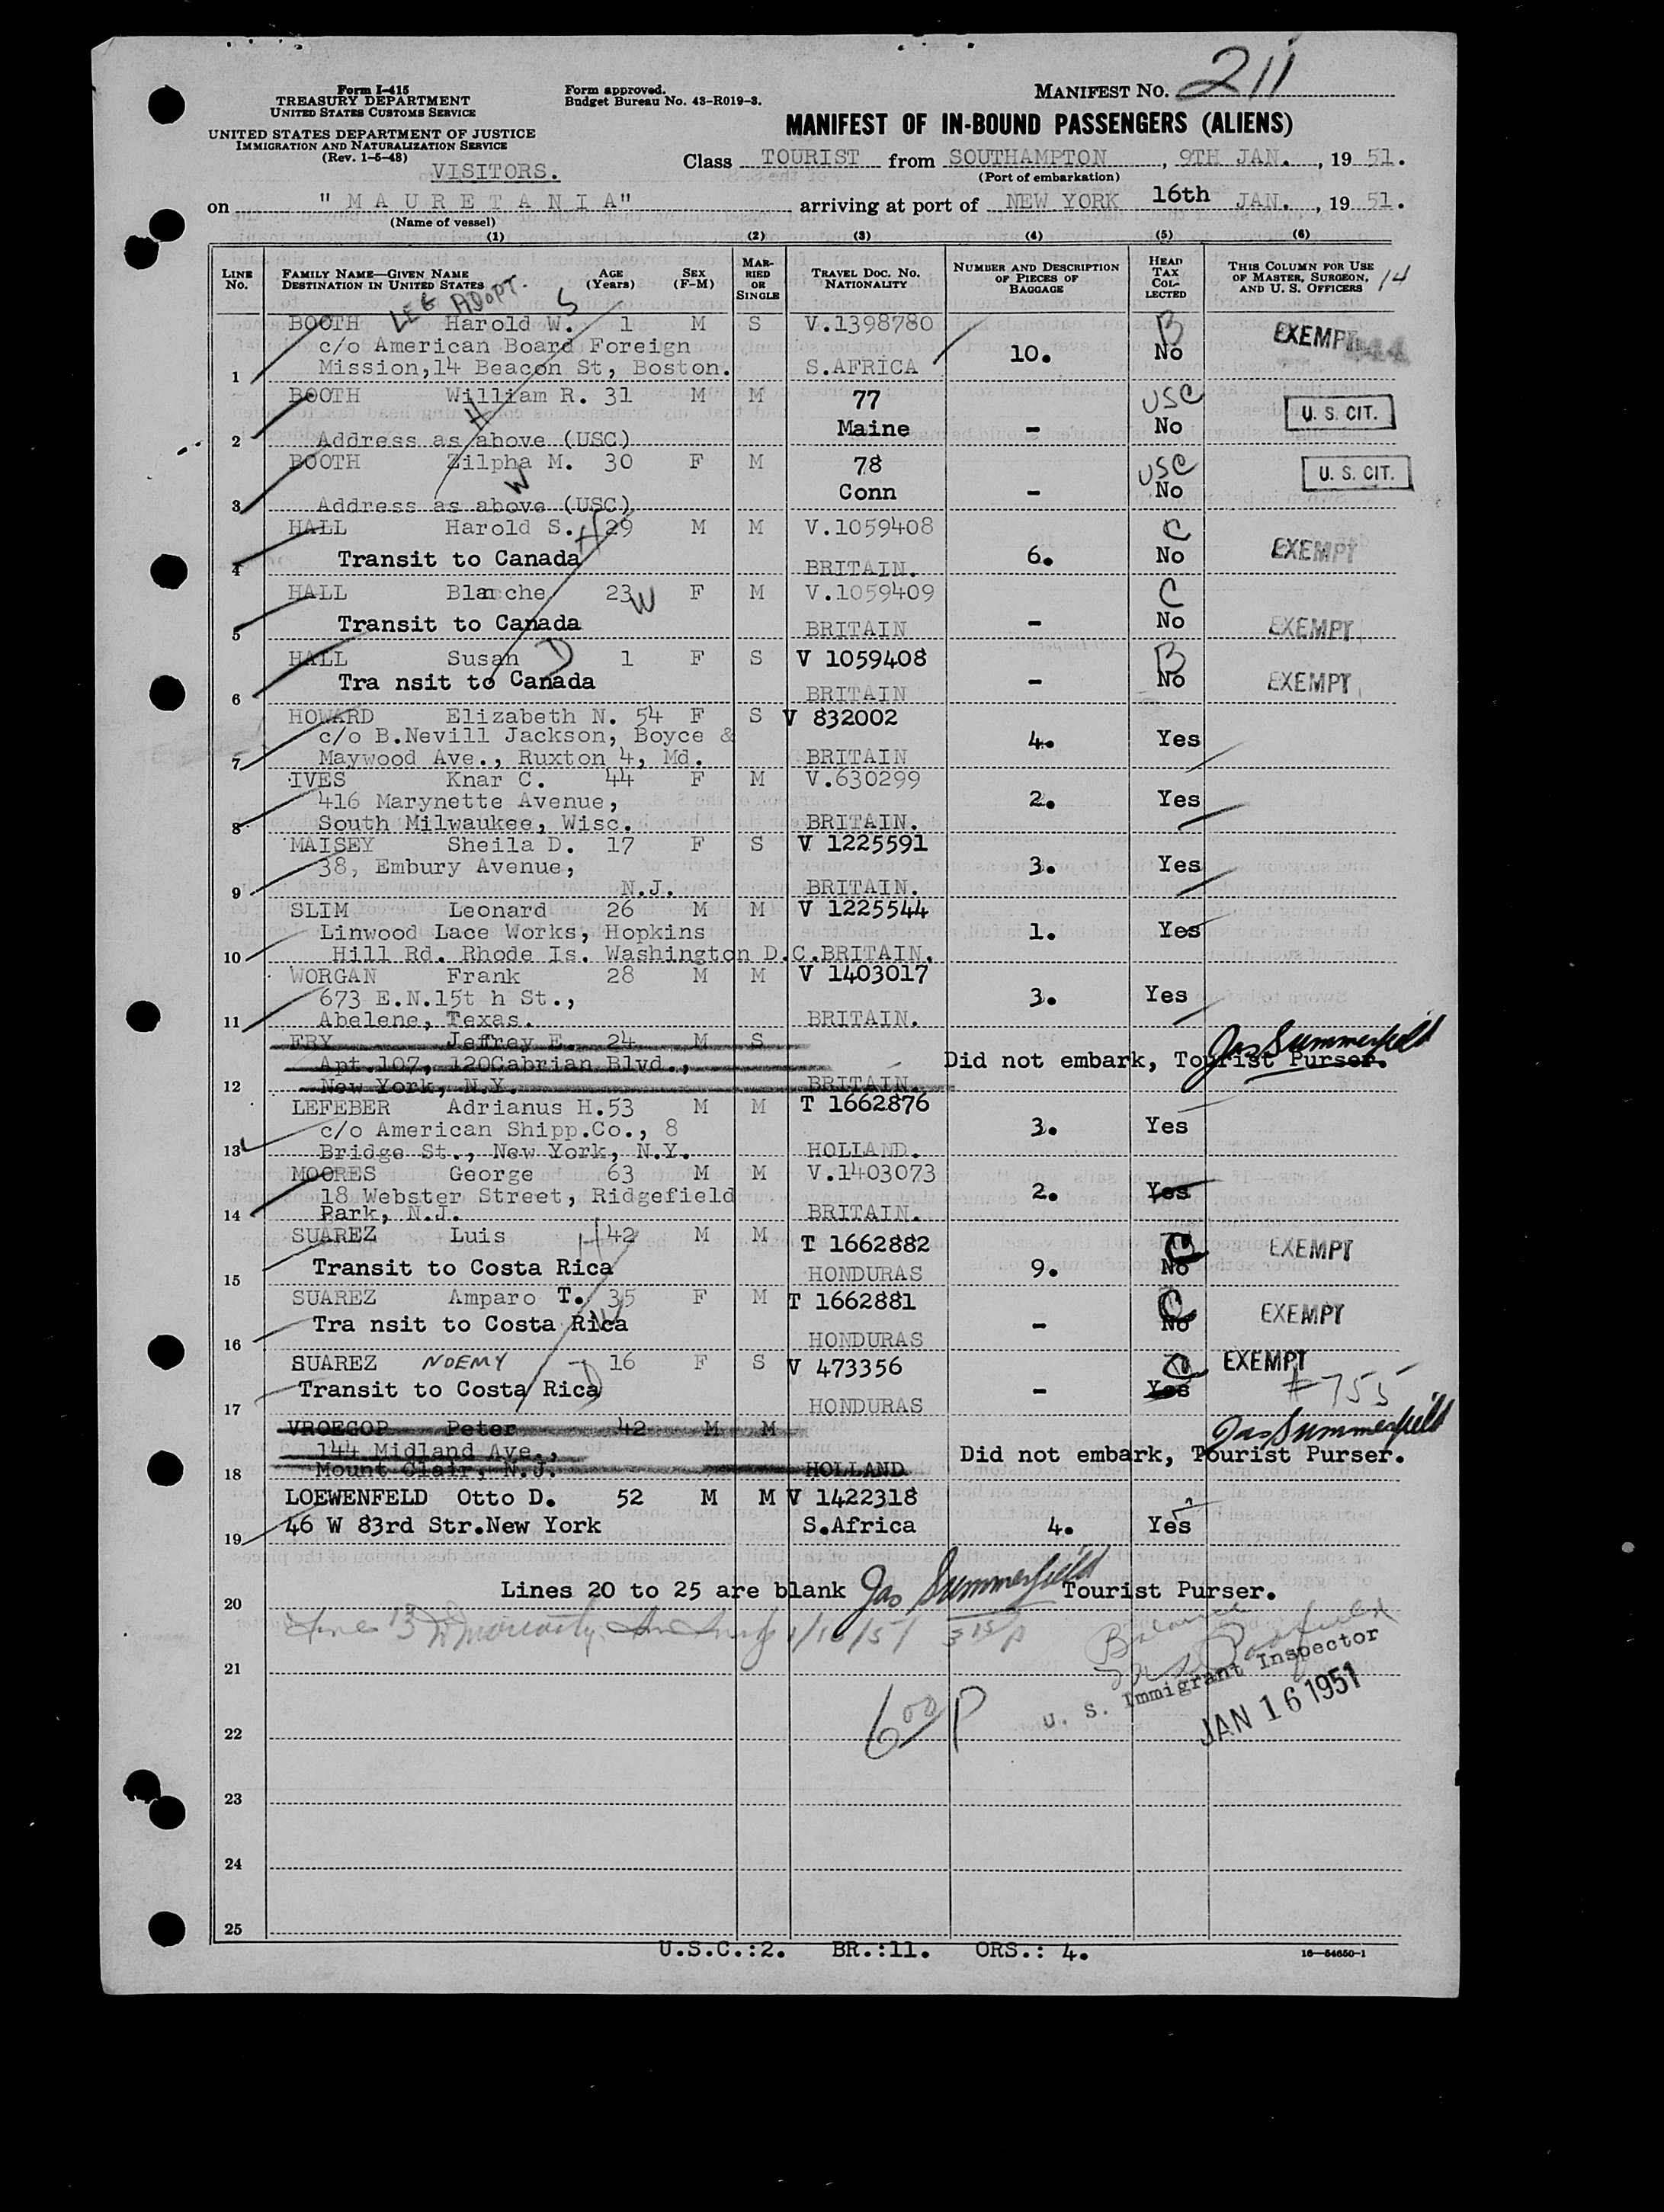 Form I-415
TREASURY DEPARTMENT
UNITED STATES CUSTOMS SERVICE
UNITED STATES DEPARTMENT OF JUSTICE
IMMIGRATION AND NATURALIZATION SERVICE
(Rev. 1-5-48)
Form approved.
Budget Bureau No. 43-R019-3.
MANIFEST NO. 211
MANIFEST OF IN-BOUND PASSENGERS (ALIENS)
VISITORS.
Class TOURIST from SOUTHAMPTON, 9TH JAN., 19 51.
(Port of embarkation)
on "MAURETANIA" arriving at port of NEW YORK 16th JAN., 19 51.
(Name of vessel)
(1) (2) (3) (4) (5) (6)
LINE No. FAMILY NAME—GIVEN NAME DESTINATION IN UNITED STATES AGE (Years) SEX (F-M) MARRIED OR SINGLE TRAVEL DOC. NO. NATIONALITY NUMBER AND DESCRIPTION OF PIECES OF BAGGAGE HEAD TAX COLLECTED THIS COLUMN FOR USE OF MASTER, SURGEON, AND U. S. OFFICERS 14
LEG ADOPT. S
BOOTH Harold W. 1 M S V.1398780 B EXEMPT
c/o American Board Foreign 10. No
1 Mission,14 Beacon St, Boston. S.AFRICA
BOOTH William R. 31 M M 77 USC U. S. CIT.
H Maine - No
2 Address as above (USC)
BOOTH Zilpha M. 30 F M 78 USC U. S. CIT.
W Conn - No
3 Address as above (USC)
HALL Harold S. H 29 M M V.1059408 C
Transit to Canada 6. No EXEMPT
4 BRITAIN.
HALL Blanche 23 W F M V.1059409 C
5 Transit to Canada BRITAIN - No EXEMPT
HALL Susan D 1 F S V 1059408 B
Tra nsit to Canada - No EXEMPT
6 BRITAIN
HOWARD Elizabeth N. 54 F S V 832002
c/o B.Nevill Jackson, Boyce & 4. Yes
7 Maywood Ave., Ruxton 4, Md. BRITAIN
IVES Knar C. 44 F M V.630299
416 Marynette Avenue, 2. Yes
8 South Milwaukee, Wisc. BRITAIN.
MAISEY Sheila D. 17 F S V 1225591
38, Embury Avenue, 3. Yes
9 N.J. BRITAIN.
SLIM Leonard 26 M M V 1225544
Linwood Lace Works, Hopkins 1. Yes
10 Hill Rd. Rhode Is. Washington D.C. BRITAIN.
WORGAN Frank 28 M M V 1403017
673 E.N.15t h St., 3. Yes
11 Abelene, Texas. BRITAIN.
FRY Jeffrey E. 24 M S
Apt.107, 120Cabrian Blvd., Did not embark, Tourist Purser. Jas Summerfield
12 New York, N.Y. BRITAIN.
LEFEBER Adrianus H.53 M M T 1662876
c/o American Shipp.Co., 8 3. Yes
13 Bridge St., New York, N.Y. HOLLAND.
MOORES George 63 M M V.1403073
18 Webster Street, Ridgefield 2. Yes
14 Park, N.J. BRITAIN.
SUAREZ Luis H 42 M M T 1662882 C EXEMPT
15 Transit to Costa Rica HONDURAS 9. No
SUAREZ Amparo T. 35 F M T 1662881 C EXEMPT
Tra nsit to Costa Rica W - No
16 HONDURAS
SUAREZ NOEMY - 16 F S V 473356 EXEMPT
Transit to Costa Rica D - Yes #755
17 HONDURAS
VROEGOP Peter 42 M M
144 Midland Ave., Did not embark, Tourist Purser. Jas Summerfield
18 Mount Clair, N.J. HOLLAND
LOEWENFELD Otto D. 52 M M V 1422318
19 46 W 83rd Str.New York S.Africa 4. Yes
20 Lines 20 to 25 are blank Jas Summerfield Tourist Purser.
Line 13 1/16/51 3 15 P
U. S. Immigrant Inspector
21
JAN 16 1951
6 00 P
22
23
24
25
U.S.C.:2. BR.:11. ORS.: 4.
16—54650-1